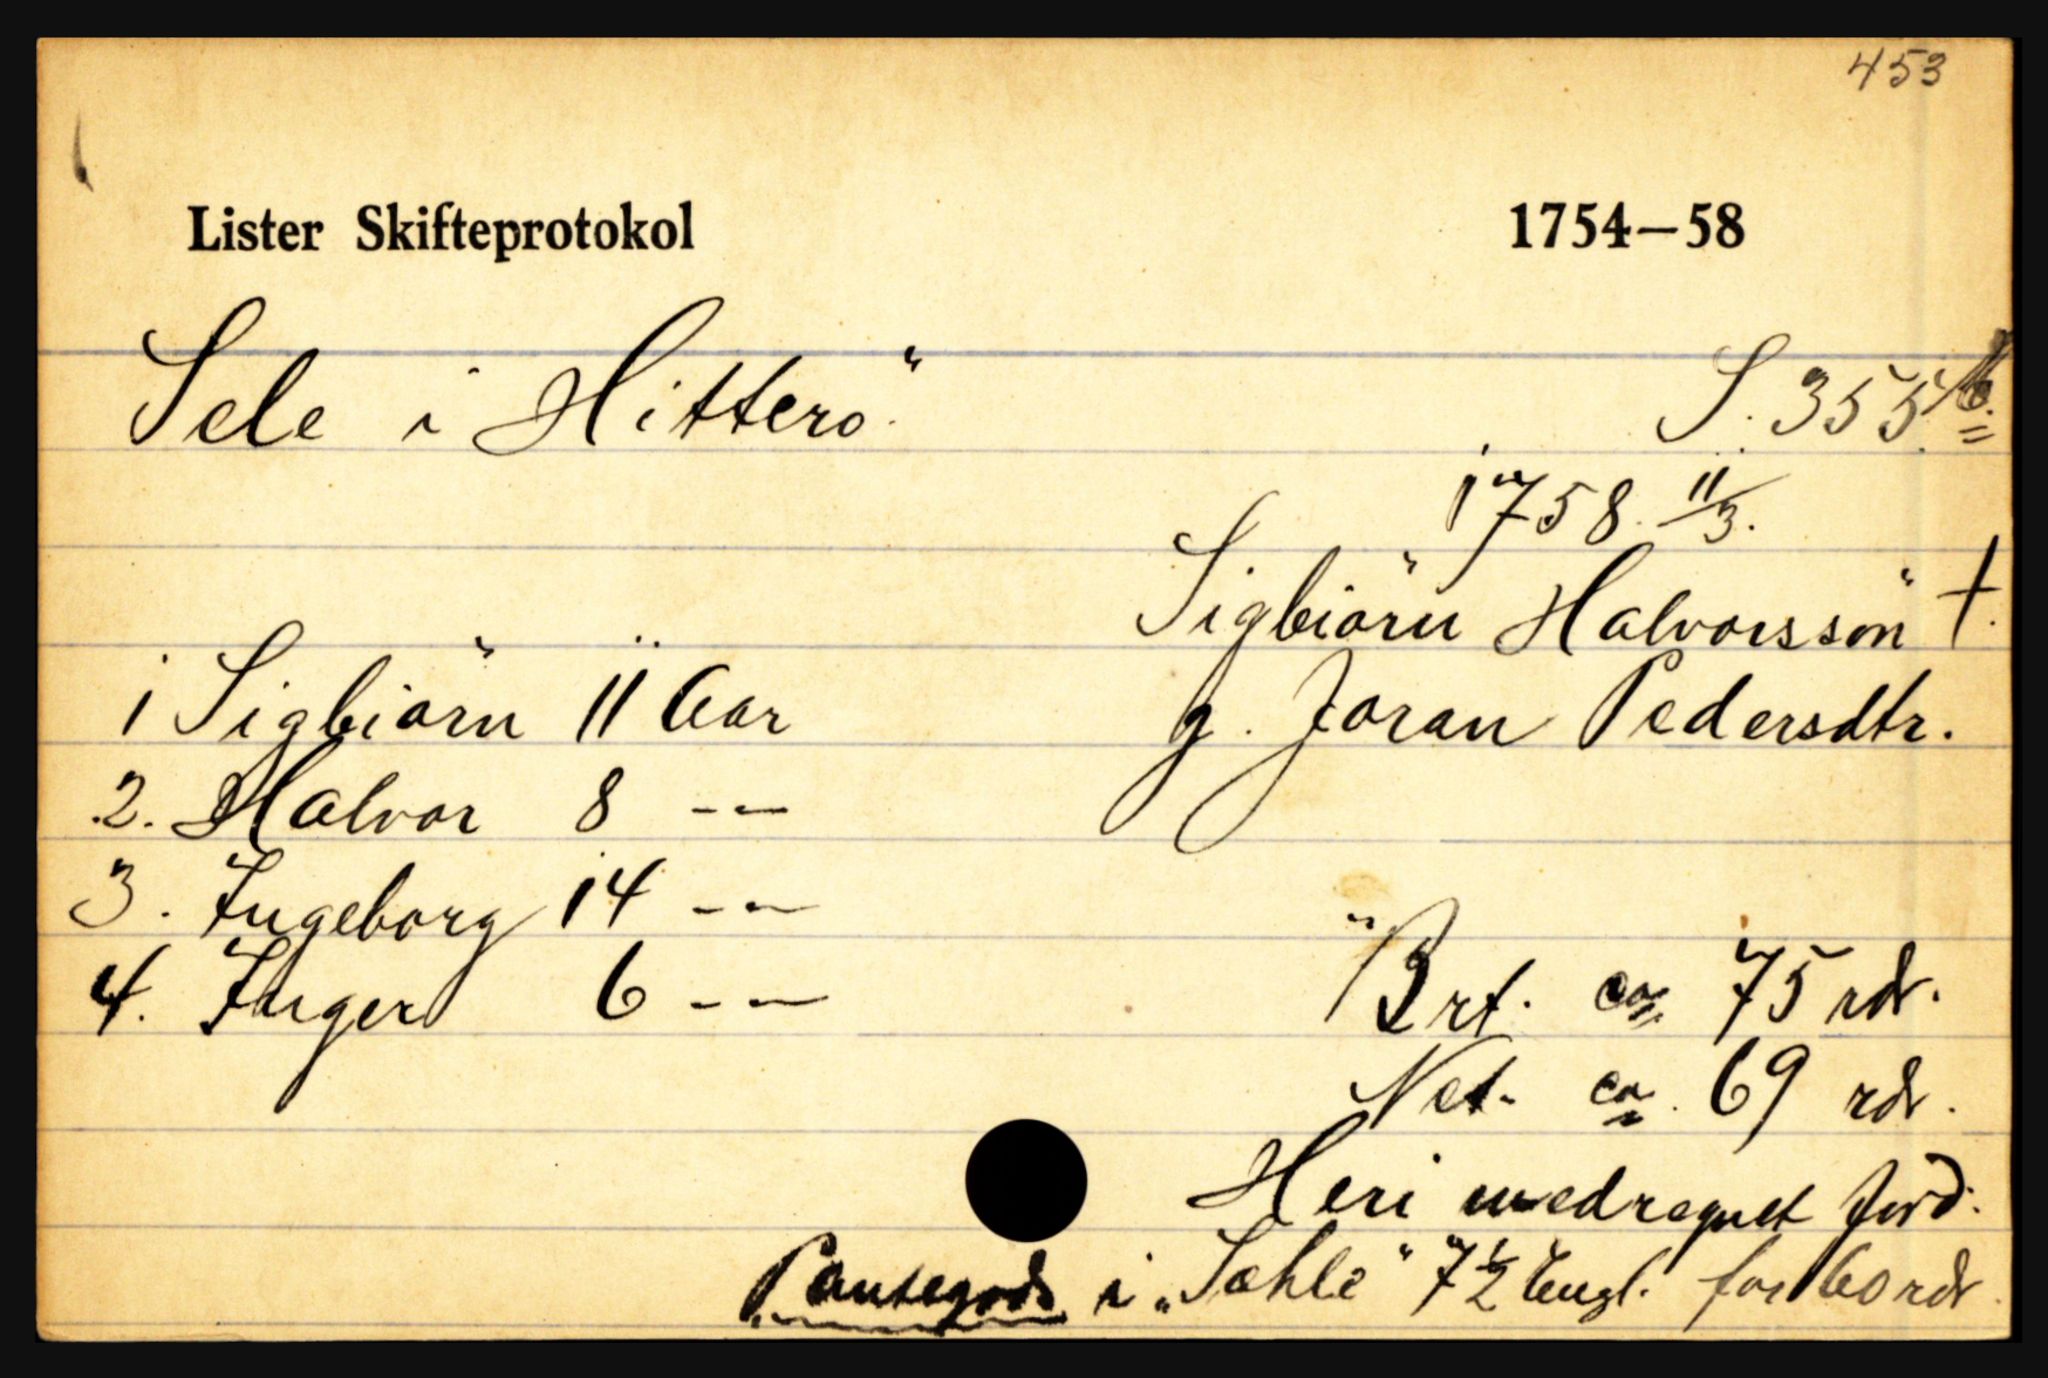 453
Lister Skifteprotokol 1754—58
Sele i Hitterö. S. 355
1758 11/3.
Sigbiörn Halvorssön †.
g. Joran Pedersdtr.
1 Sigbiörn 11 Aar
2. Halvor 8 --
3. Ingeborg 14 --
4. Inger 6 --
Brt. ca 75 rdr.
Net. ca. 69 rdr.
Heri medregnet Jord:
Pantegods i „Sæhle" 7½ Engl. for 60 rdr